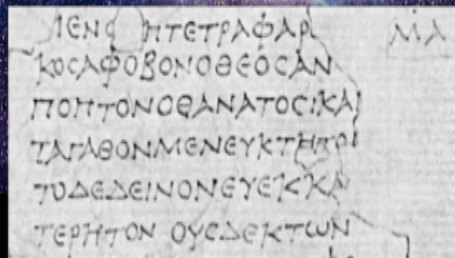 ΗΤΕΤΡΑΦΑΡ ΜΑ
ΚΟϹΑΦΟΒΟΝΟΘΕΟϹΑΝ
ΠΟΠΤΟΝΟΘΑΝΑΤΟϹΙΚΑΙ
ΤΑΓΑΘΟΝΜΕΝΕΥΚΤΗΤΟ
ΤΟΔΕΔΕΙΝΟΝΕΥΕΚΚΑ
ΤΕΡΗΤΟΝ ΟΥϹΔΕΚΤΩΝ